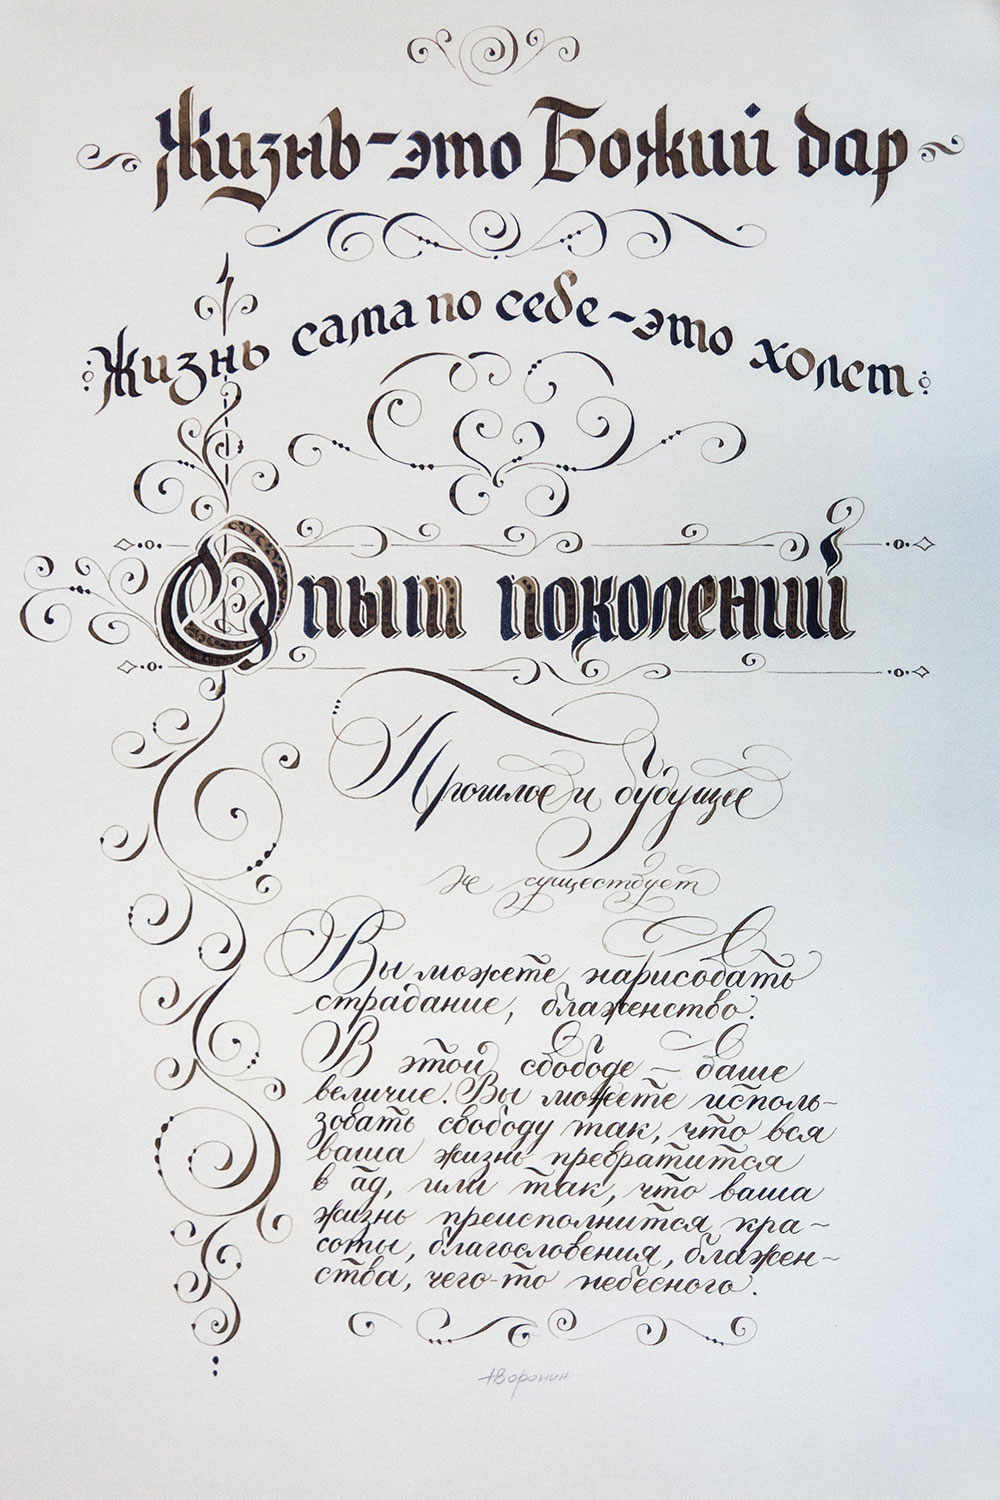 Жизнь - это Божий дар
Жизнь сама по себе - это холст
Опыт поколений
Прошлое и будущее
не существует
Вы можете нарисовать
страдание, блаженство.
В этой свободе – ваше
величие. Вы можете исполь-
зовать свободу так, что вся
ваша жизнь превратится
в ад, или так, что ваша
жизнь преисполнится кра-
соты, благословения, блажен-
ства, чего-то небесного.
Воронин